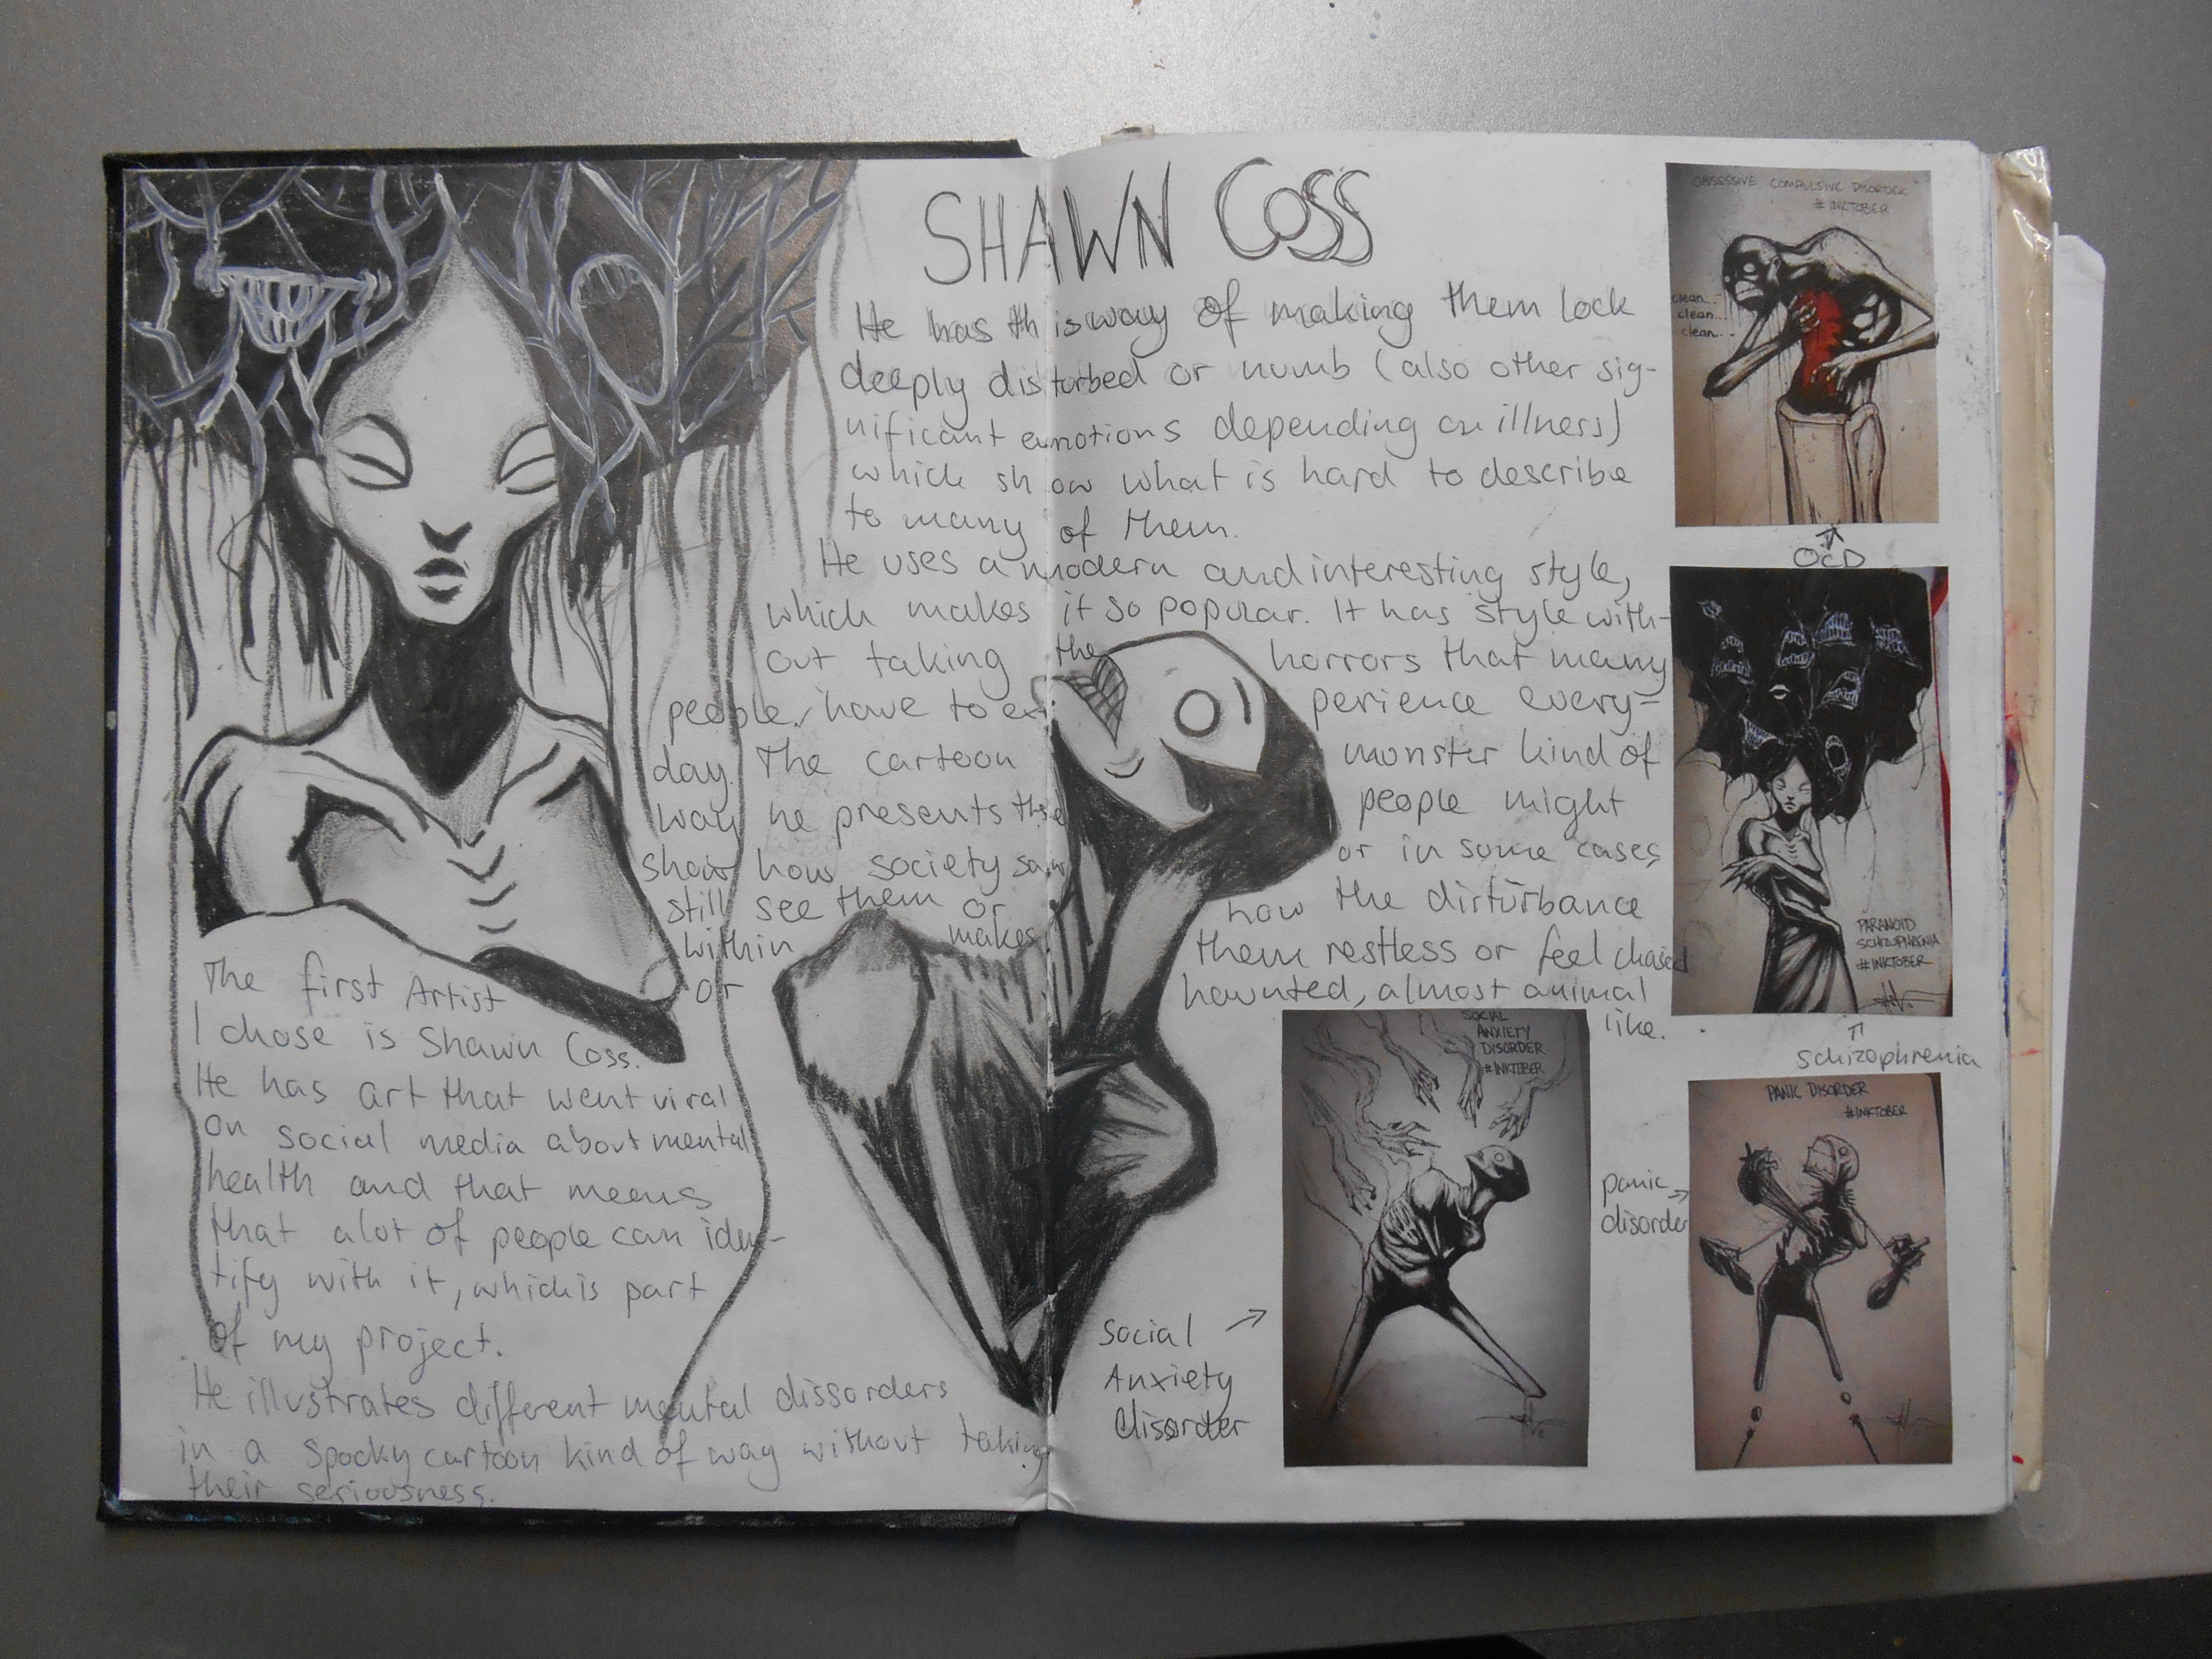 SHAWN COSS
The first Artist
I chose is Shawn Coss.
He has art that went viral
on social media about mental
health and that means
that alot of people can iden-
tify with it, which is part
of my project.
He illustrates different mental dissorders
in a spooky cartoon kind of way without taking
their seriousness.
He has this way of making them look
deeply disturbed or numb (also other sig-
nificant emotions depending on illness)
which show what is hard to describe
to many of them.
He uses a modern and interesting style,
which makes it so popular. It has style with-
out taking the horrors that many
people have to ex- perience every-
day. The cartoon monster kind of
way he presents people might
show how society saw or in some cases
still see them or how the disturbance
within makes them restless or feel chased
or haunted, almost animal
like.
OBSESSIVE COMPULSIVE DISORDER
#INKTOBER
clean...
clean...
clean...
OCD
PARANOID
SCHIZOPHRENIA
#INKTOBER
schizophrenia
SOCIAL
ANXIETY
DISORDER
#INKTOBER
Social
Anxiety
disorder
PANIC DISORDER
#INKTOBER
panic
disorder